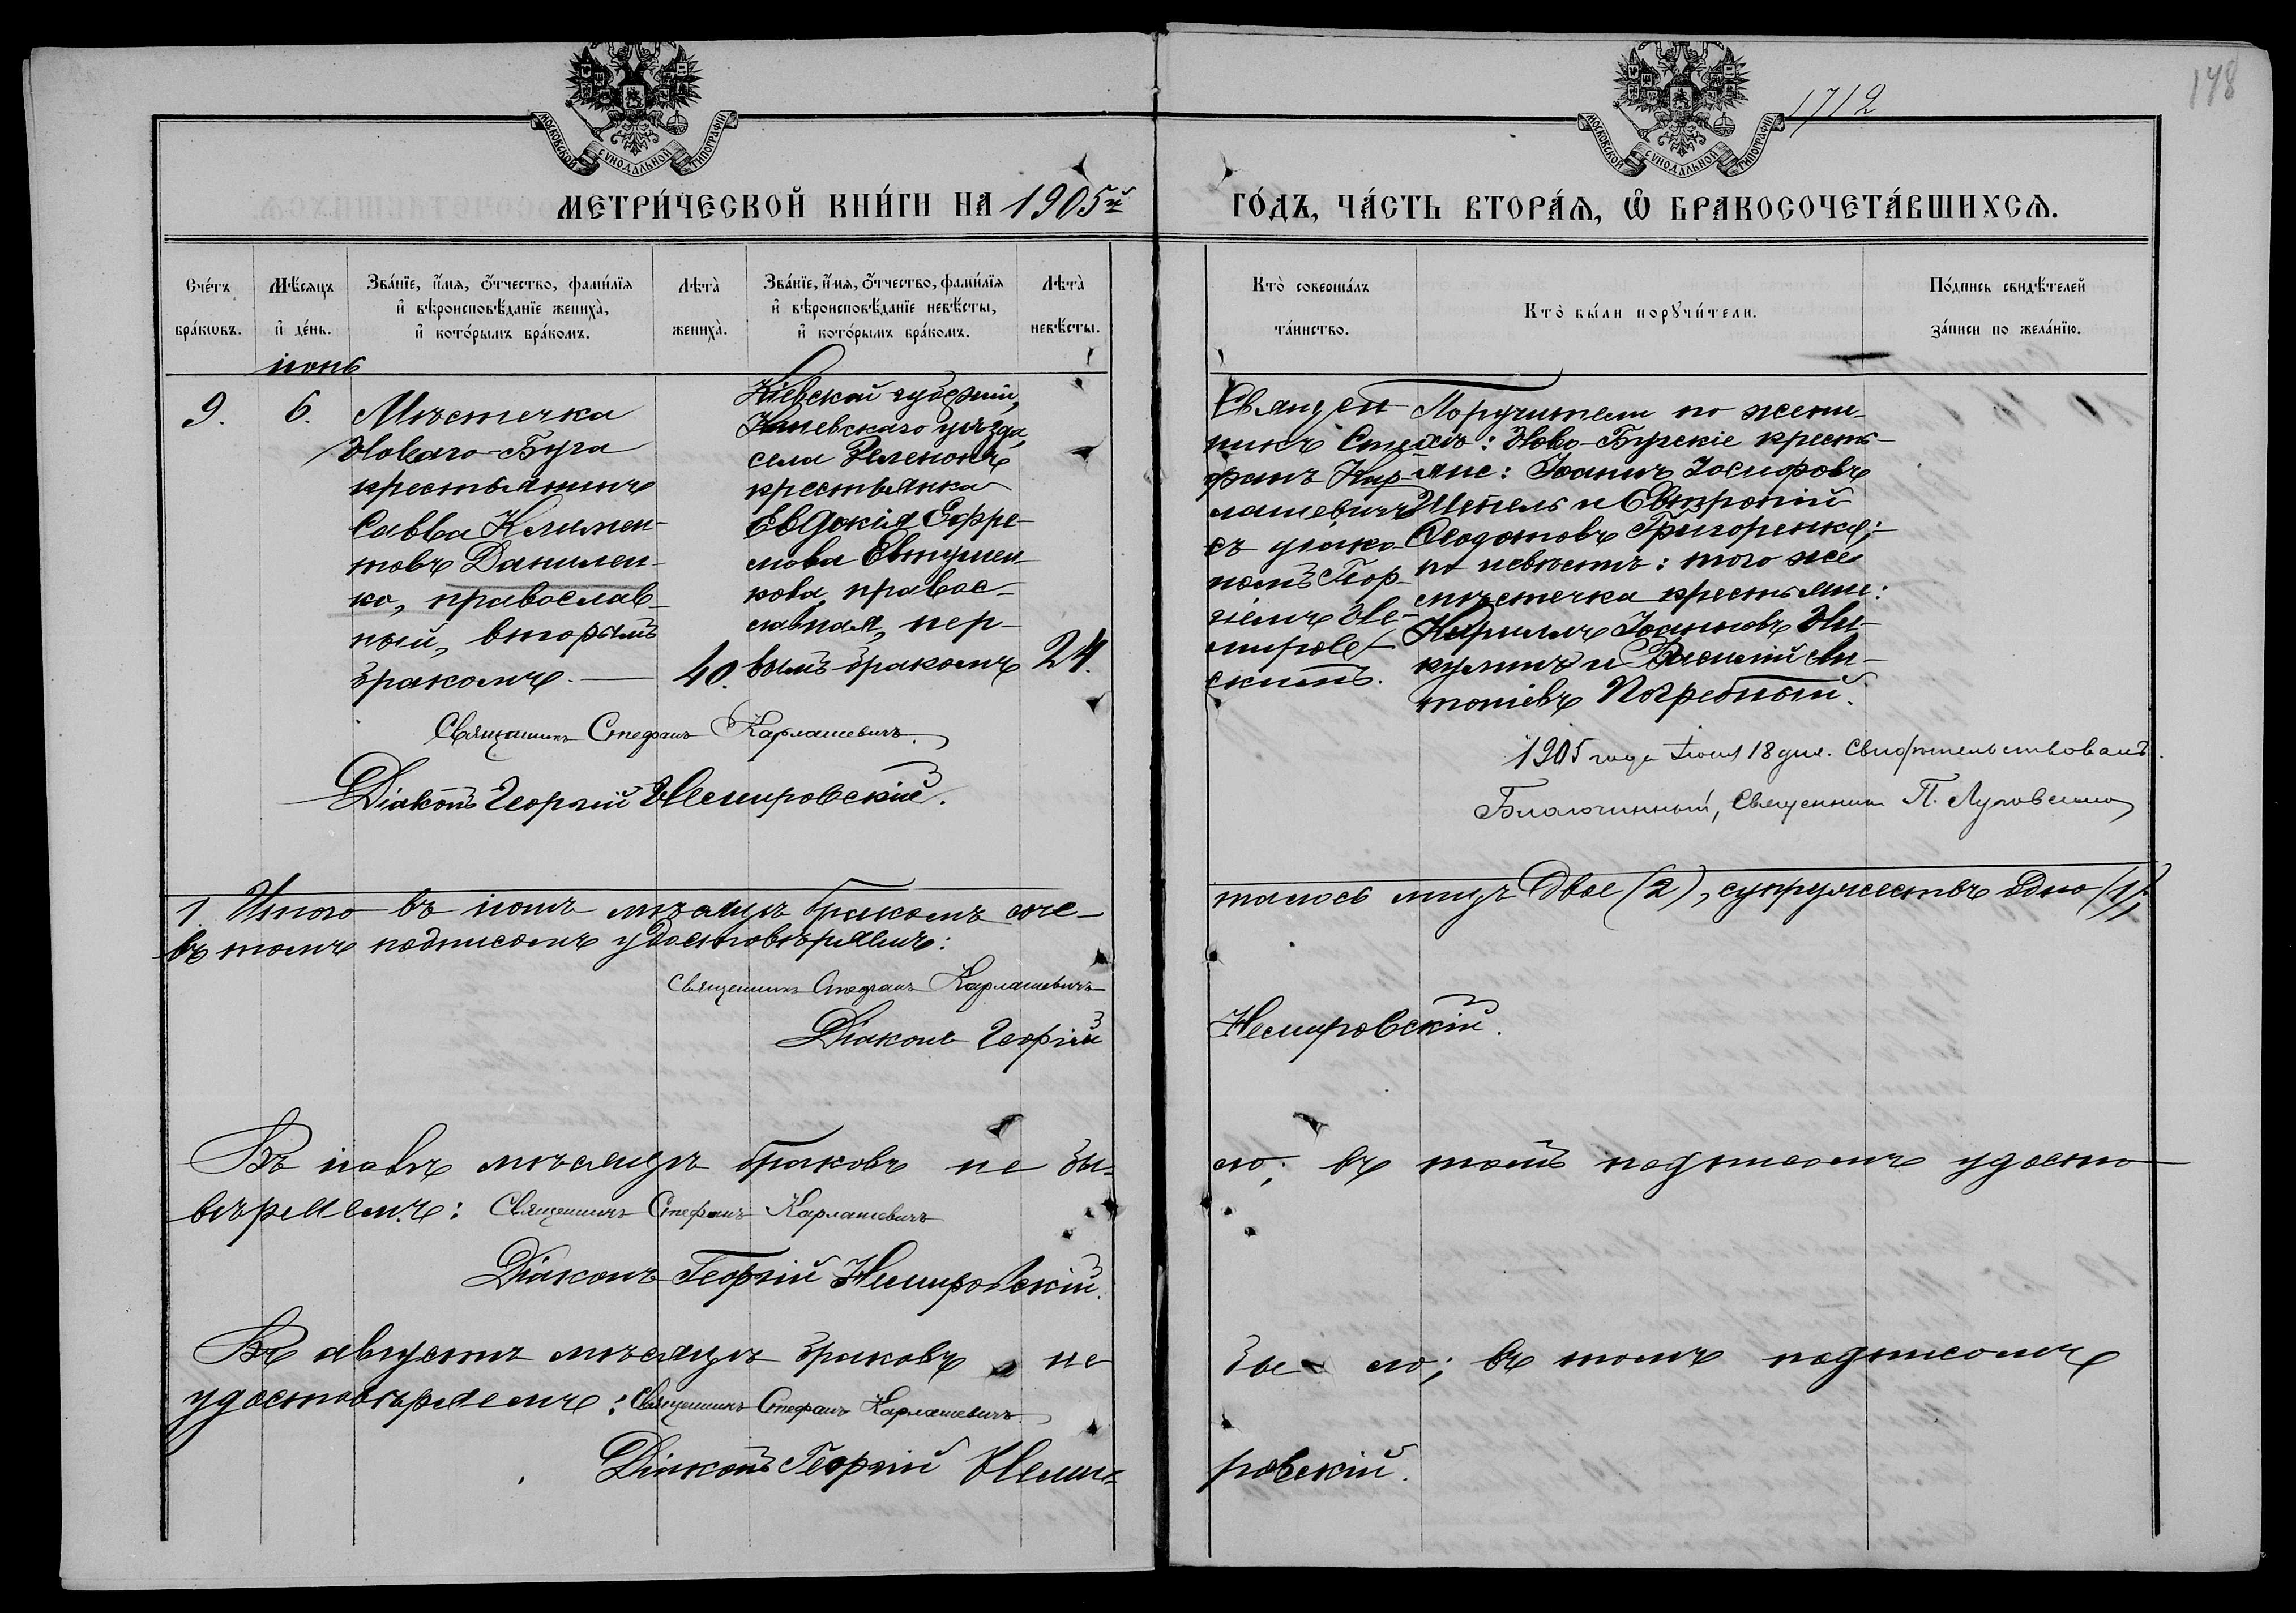 148
1712
МОСКОВСКОЙ СѴНОДАЛЬНОЙ ТИПОГРАФІИ
МОСКОВСКОЙ СѴНОДАЛЬНОЙ ТИПОГРАФІИ
МЕТРИ́ЧЕСКОЙ КНИ́ГИ НА 1905й
ГО́ДЪ, ЧА́СТЬ ВТОРА́Ѧ, Ѡ БРАКОСОЧЕТА́ВШИХСѦ.
Сче́тъ бра́кѡвъ.
Мѣ́сяцъ и де́нь.
Зва́нїе, и́мя, о́тчество, фами́лїя
и вѣроисповѣ́данїе жениха̀,
и кото́рымъ бра́комъ.
Лѣта̀ жениха̀.
Зва́нїе, и́мя, о́тчество, фами́лїя
и вѣроисповѣ́данїе невѣ́сты,
и кото́рымъ бра́комъ.
Лѣта̀ невѣ́сты.
Кто̀ соверша́лъ та́инство.
Кто̀ бы́ли порꙋчи́тели.
По́дпись свидѣ́телей
за́писи по жела́нїю.
іюнь
9.
6.
Мѣстечка
Новаго-Буга
крестьянинъ
Савва Климен-
товъ Данилен-
ко, православ-
ный, вторымъ
бракомъ.
40.
Кіевской губерніи,
Каневскаго уѣзда,
села Зеленокъ
крестьянка
Евдокія Ефре-
мова Евтушен-
кова, правос-
лавная, пер-
вымъ бракомъ
24.
Священ
никъ Сте
фанъ Кар-
лашевичъ
съ діако-
номъ Геор-
гіемъ Не-
миров-
скимъ.
Поручители по жени-
хѣ: Ново-Бугскіе кресть-
яне: Іоаннъ Іосифовъ
Шепель и Евтропій
Ѳеодотовъ Григоренко;
по невѣстѣ: того же
мѣстечка крестьяне:
Кириллъ Іоанновъ Ни-
кулинъ и Василій Ан-
тоніевъ Погребный.
Священникъ Стефанъ Карлашевичъ.
Діаконъ Георгій Немировскій.
1905 года Іюля 18 дня. Свидѣтельствовалъ.
Благочинный, Священникъ П. Луговенко
1 Итого въ іюнѣ мѣсяцѣ бракомъ соче-
талось лицъ двое (2), супружествъ одно (1);
въ томъ подписомъ удостовѣряемъ:
Священникъ Стефанъ Карлашевичъ
Діаконъ Георгій
Немировскій.
Въ іюлѣ мѣсяцѣ браковъ не бы-
ло; въ томъ подписомъ удосто
вѣряемъ: Священникъ Стефанъ Карлашевичъ
Діаконъ Георгій Немировскій.
Въ августѣ мѣсяцѣ браковъ не
бы ло; въ томъ подписомъ
удостовѣряемъ: Священникъ Стефанъ Карлашевичъ
Діаконъ Георгій Неми-
ровскій.